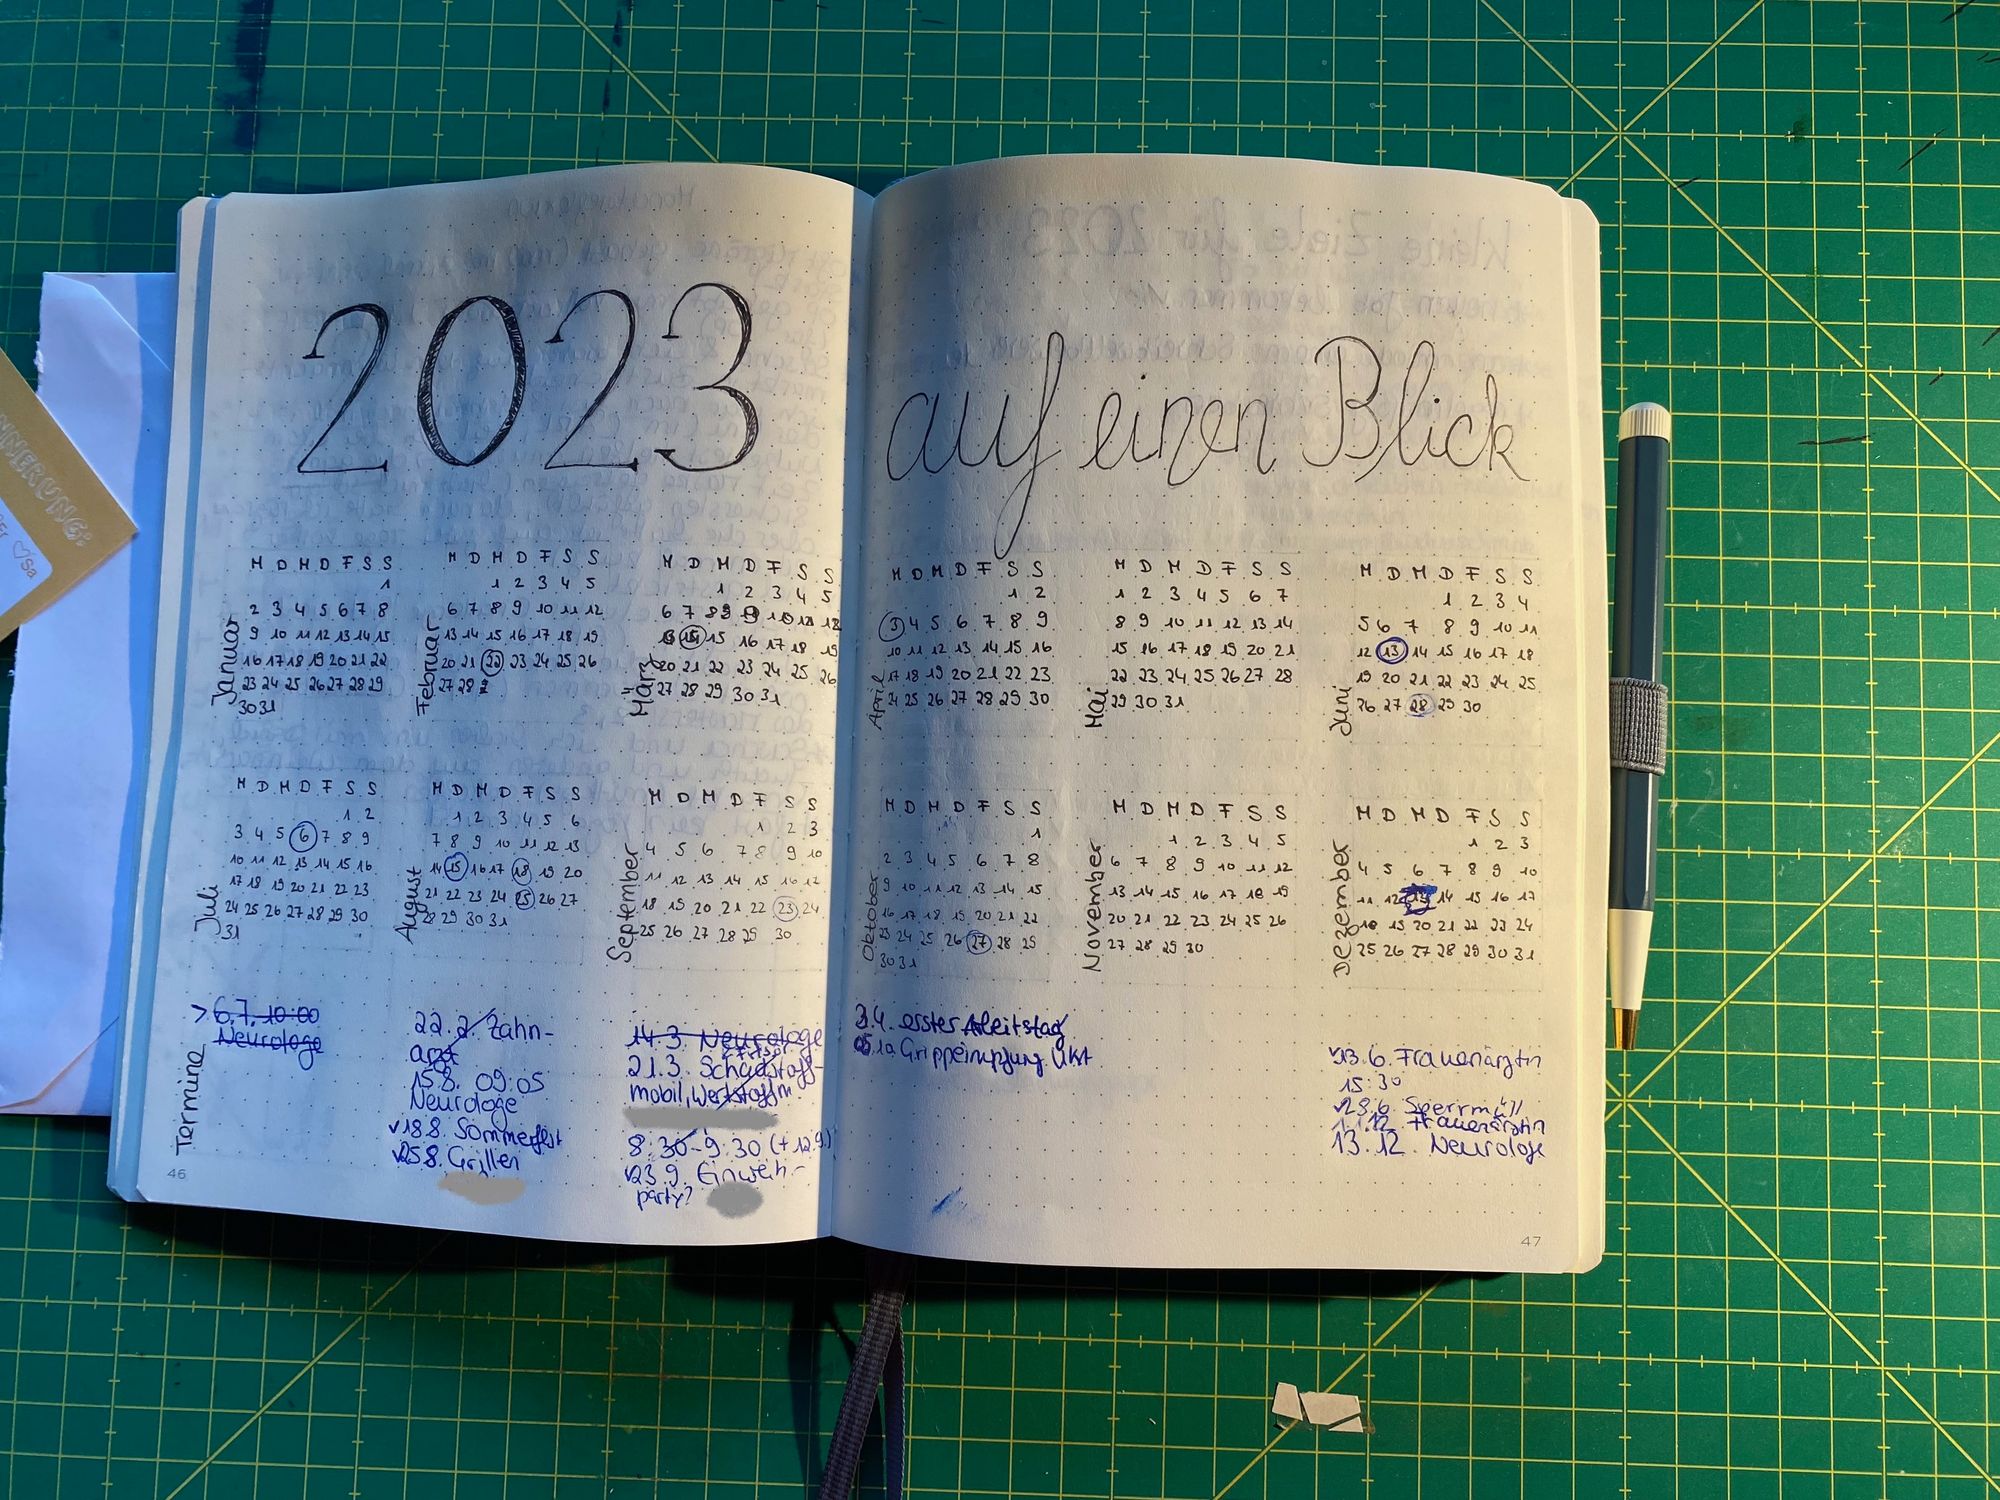 2023
auf einen Blick
Januar
M D M D F S S
1
2 3 4 5 6 7 8
9 10 11 12 13 14 15
16 17 18 19 20 21 22
23 24 25 26 27 28 29
30 31
Februar
M D M D F S S
1 2 3 4 5
6 7 8 9 10 11 12
13 14 15 16 17 18 19
20 21 22 23 24 25 26
27 28
März
M D M D F S S
1 2 3 4 5
6 7 8 9 10 11 12
13 14 15 16 17 18 19
20 21 22 23 24 25 26
27 28 29 30 31
April
M D M D F S S
1 2
3 4 5 6 7 8 9
10 11 12 13 14 15 16
17 18 19 20 21 22 23
24 25 26 27 28 29 30
Mai
M D M D F S S
1 2 3 4 5 6 7
8 9 10 11 12 13 14
15 16 17 18 19 20 21
22 23 24 25 26 27 28
29 30 31
Juni
M D M D F S S
1 2 3 4
5 6 7 8 9 10 11
12 13 14 15 16 17 18
19 20 21 22 23 24 25
26 27 28 29 30
Juli
M D M D F S S
1 2
3 4 5 6 7 8 9
10 11 12 13 14 15 16
17 18 19 20 21 22 23
24 25 26 27 28 29 30
31
August
M D M D F S S
1 2 3 4 5 6
7 8 9 10 11 12 13
14 15 16 17 18 19 20
21 22 23 24 25 26 27
28 29 30 31
September
M D M D F S S
1 2 3
4 5 6 7 8 9 10
11 12 13 14 15 16 17
18 19 20 21 22 23 24
25 26 27 28 29 30
Oktober
M D M D F S S
1
2 3 4 5 6 7 8
9 10 11 12 13 14 15
16 17 18 19 20 21 22
23 24 25 26 27 28 29
30 31
November
M D M D F S S
1 2 3 4 5
6 7 8 9 10 11 12
13 14 15 16 17 18 19
20 21 22 23 24 25 26
27 28 29 30
Dezember
M D M D F S S
1 2 3
4 5 6 7 8 9 10
11 12 13 14 15 16 17
18 19 20 21 22 23 24
25 26 27 28 29 30 31
Termine
> 6.7. 10:00
Neurologe
22.2. Zahn-
arzt
15.8. 09:05
Neurologe
18.8. Sommerfest
25.8. Grillen
14.3. Neurologe
21.3. Schadstoff-
mobil, Wertstoffm
8:30-9:30 (+12.9.)
23.9. Einweih-
party?
3.4. erster Arbeitstag
Grippeimpfung UKT
13.6. Frauenärztin
15:30
28.6. Sperrmüll
Frauenärztin
13.12. Neurologe
46
47